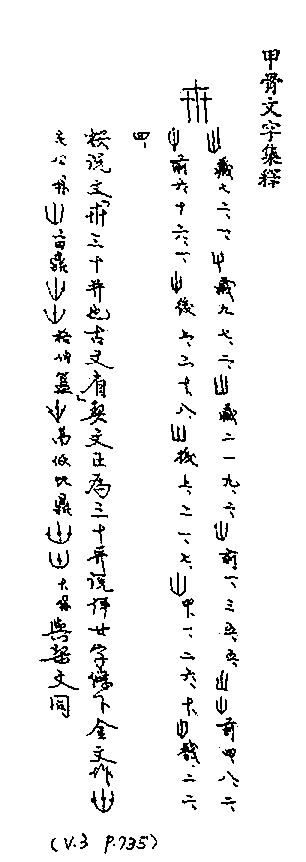 甲骨文字集釋
卅
藏七二、一、藏九七、二、藏二一九、六、前一、三五、五、前四八、二、
前六十六、一、後上、二十八、後上、二一、七、甲、一、二六、十、戩、二二、
四、
按説文「卅三十并也古文省」契文正為三十并説詳廿字條下金文作
毛公鼎 舀鼎 格伯簋 鬲攸比鼎 大保 與契文同
(V.3 P.735)